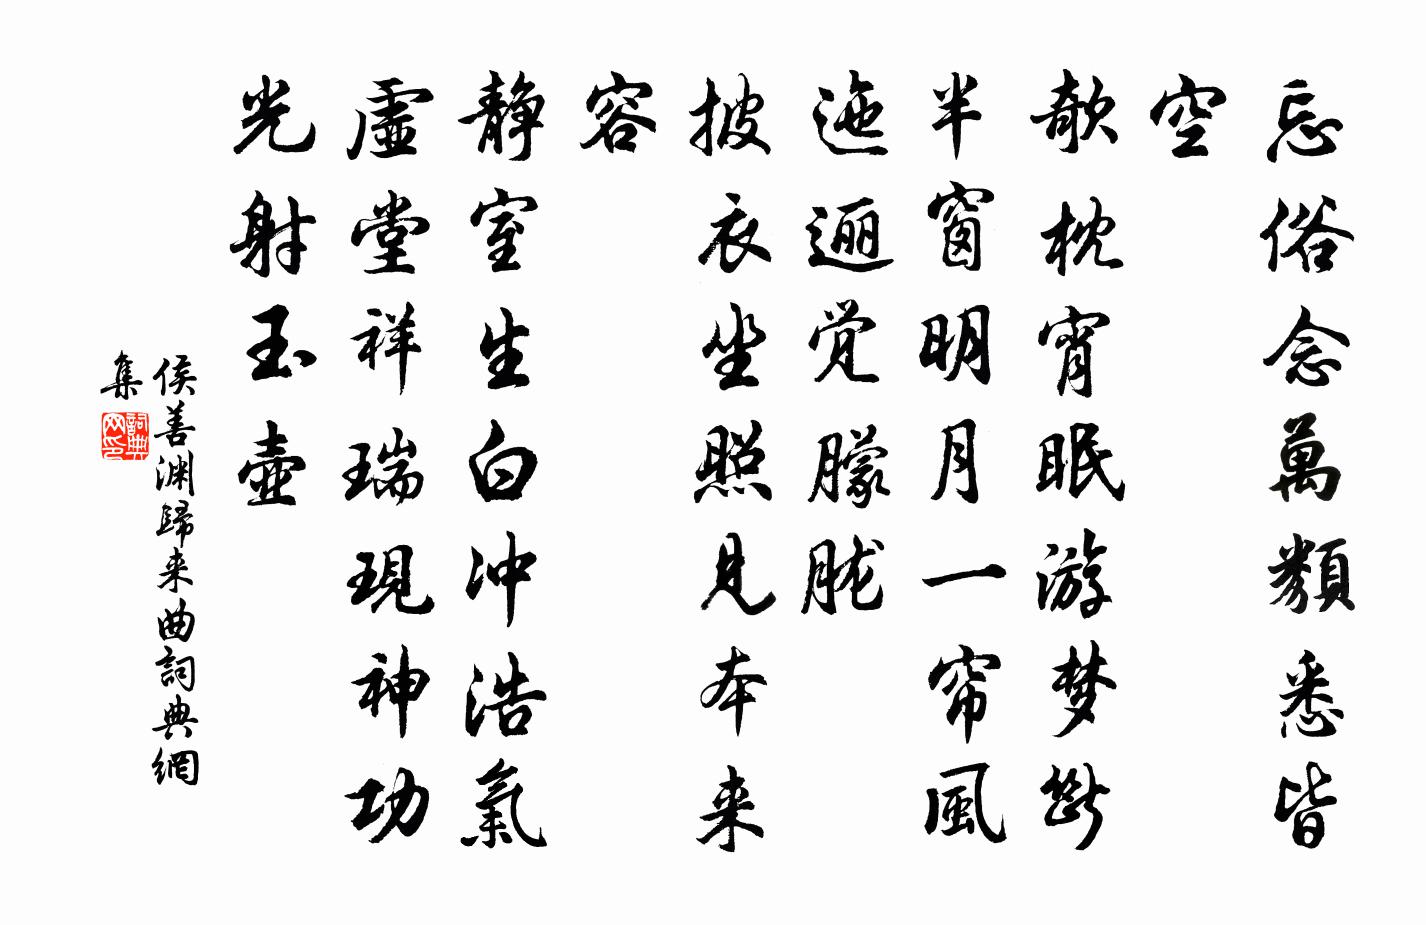 忘俗念萬類悉皆
空
欹枕宵眠游梦断
半窗明月一帘風
迤逦觉朦胧
披衣坐照見本来
容
静室生白冲浩氣
虚堂祥瑞現神功
光射玉壺
侯善渊歸来曲詞典網
集
詞典网印